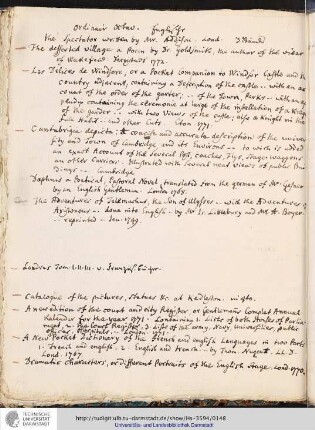 Ordinair Octav. Engl.
The Spectator written by Mr. Addison Lond.
The deserted village a poem by Dr. Goldsmith, the author of the vicar
of Wakefield
Les Delices de Windsore, or a Pocket Companion to Windsor Castle and the
Country adjacent, containing a description of the castle .. with an ac
count of the order of the garter,
pendix containing the ceremonie at large of the installation of a Knight
of the garter .. with two Views of the castle, also a Knight in the
Full Habit .. and other Cuts Eton. 1771
Cantabrigia depicta, a concise and accurate description of the univer
sity and town of Cambridge and its Environs -- to wich is added
an exact Account of the several Post, coaches, Flys, Stage waggons
an other Carriers. illustrated with several neat views of public Buil
dings -- Cambridge
Daphnis a Poetical, Pastoral Novel translated from the german of Mr. Gessner
by an English gentleman. London 1768.
The Adventures of Telemachus, the Son of Ulysses - with the Adventures of
Aristonous -- done into English - by Mr. Is. Littlebury and Mr. A. Boyer.
reprinted -
Londres Tom. I-II-III
Catalogue of the pictures, statues &c at Kedleston. in 4to.
A new edition of the court and city Register or Gentlemans Complet Annual
Kalender for the year 1771. Containing 1. Lists of both Houses of Parlia
ment, 2. the Court Register, 3. Lists of the army, Navy, Universities, public
offices, Hospitals. - London. 1771.
A New Pocket Dictionary of the french and english Languages in two Parts
1. french and english, 2. English and French -- by Thom. Nugent. LL. D.
Lond. 1767
Dramatic characters, or different Portraits of the English Stage. Lond. 1770.
TECHNISCHE
UNIVERSITÄT
DARMSTADT
http://tudigit.ulb.tu-darmstadt.de/show/Hs-3594/0146
Universitäts- und Landesbibliothek Darmstadt